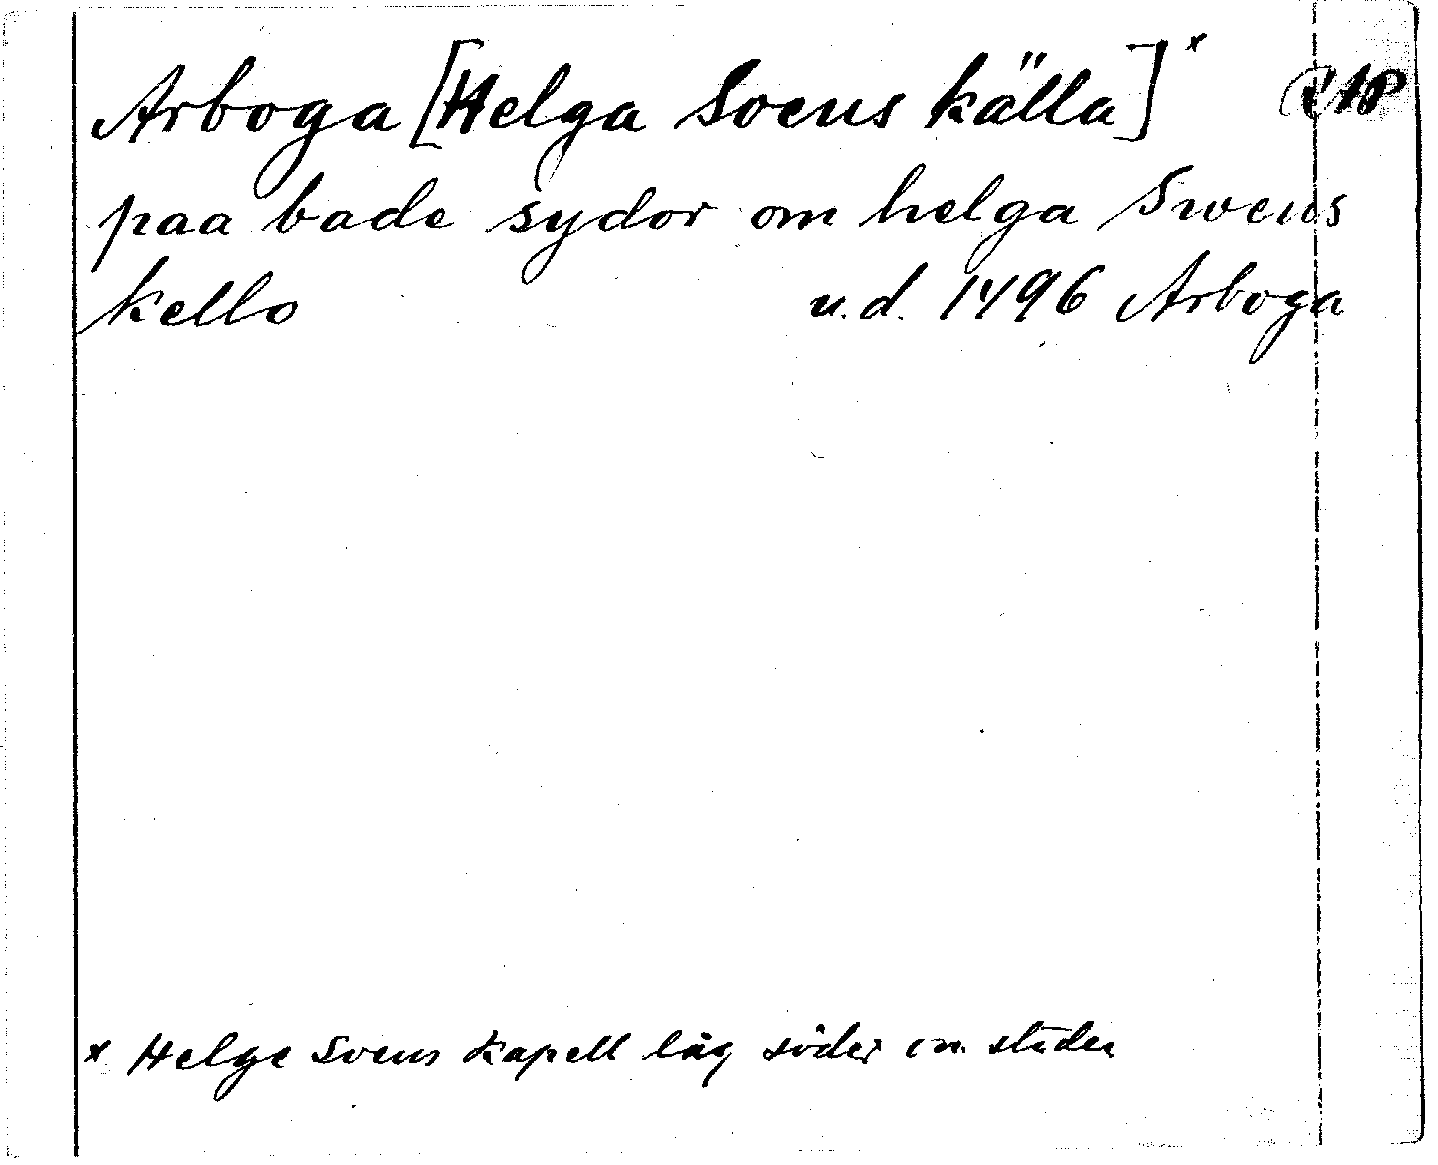 Arboga [Helga Svens källa]x
paa bade sydor om helga Swens
kello u.d. 1496 Arboga
x Helge Svens kapell låg söder om staden